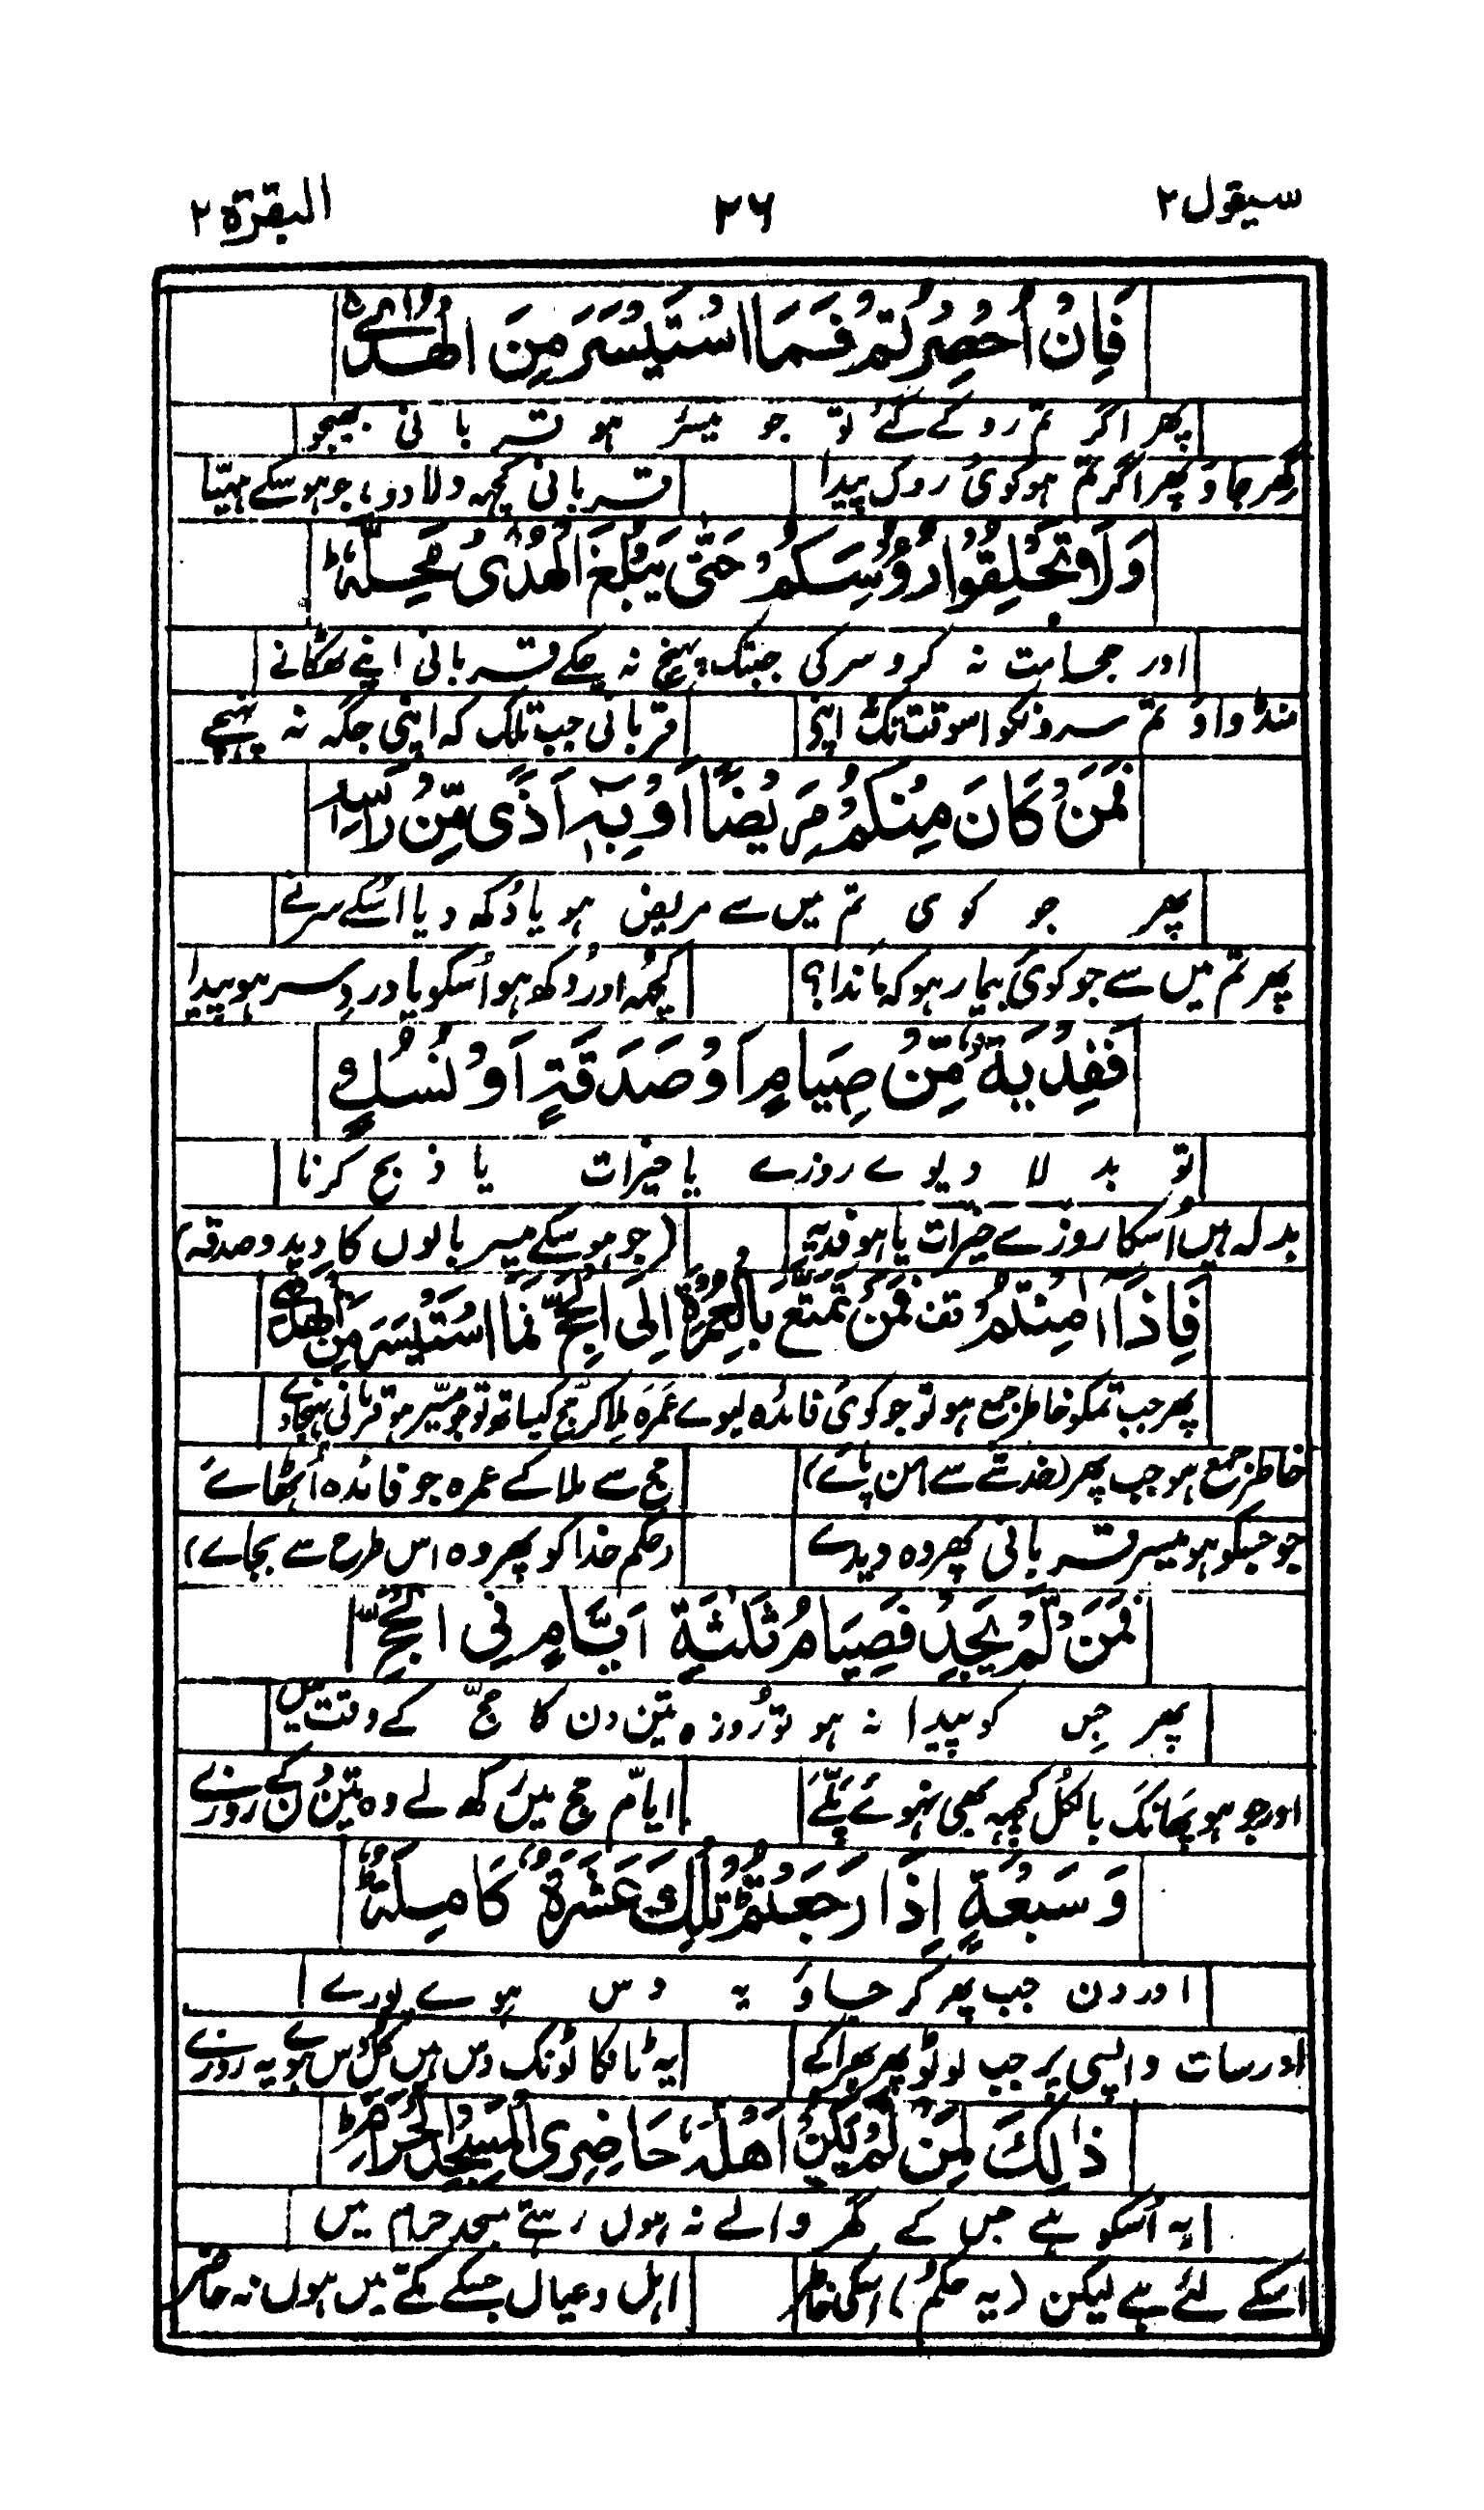 سیقول ۲ ۲۶ البقرۃ ۲
فَاِنْ اُحْصِرْتُمْ فَمَا اسْتَیْسَرَ مِنَ الْهَدْیِ ۚ
پھر اگر تم روکے گئے تو جو میسّر ہو قربانی بھیجو
گھر جاؤ پھر اگر تم ہو کوئی روک پیدا قربانی کچھہ دلا دو، جو ہوسکے مہیّا
وَلَا تَحْلِقُوْا رُءُوْسَكُمْ حَتّٰی یَبْلُغَ الْهَدْیُ مَحِلَّهٗ ؕ
اور حجامت نہ کرو سر کی جبتک پہنچ نہ چکے قربانی اپنے ٹھکانے
منڈواؤ تم سر ونکو اسوقت تک اپنی قربانی جب تلک کہ اپنی جگہ نہ پہنچے
فَمَنْ كَانَ مِنْكُمْ مَّرِیْضًا اَوْ بِهٖۤ اَذًی مِّنْ رَّاْسِهٖ
پھر جو کوی تم میں سے مریض ہو یا دُکھ دیا اُسکے سرنے
پھر تم میں سے جو کوئی بیمار ہو کہ ماندا؟ کچھہ اور دُکھ ہو اُسکو یا دردِ سر ہو پیدا
فَفِدْیَةٌ مِّنْ صِیَامٍ اَوْ صَدَقَةٍ اَوْ نُسُكٍ ۚ
تو بدلا دیوے روزے یا خیرات یا ذبح کرنا
بدلہ ہیں اُسکا روزے خیرات یا ہو فدیہ (جو ہوسکے میسر بالوں کا دیدو صدقہ)
فَاِذَاۤ اَمِنْتُمْ ٚ فَمَنْ تَمَتَّعَ بِالْعُمْرَةِ اِلَی الْحَجِّ فَمَا اسْتَیْسَرَ مِنَ الْهَدْیِ ۚ
پھر جب تمکو خاطر جمع ہو تو جو کوئی فائدہ لیوے عمرہ ملا کر حج کیساتھ تو جو میسّر ہو قربانی پہنچاوے
خاطر جمع ہو جب پھر (خدشے سے امن پائے) حج سے ملا کے عمرہ جو فائدہ اُٹھائے
جو جسکو ہو میسر قربانی پھر وہ دیدے (حکم خدا کو پھر وہ اس طرح سے بجائے)
فَمَنْ لَّمْ یَجِدْ فَصِیَامُ ثَلٰثَةِ اَیَّامٍ فِی الْحَجِّ
پھر جس کو پیدا نہ ہو تو روزہ تین دن کا حجّ کے وقت میں
اور جو ہو بالکل کچھہ بھی نہوئے پلّے ایّام حج میں رکھ لے وہ تین دن کے روزے
وَسَبْعَةٍ اِذَا رَجَعْتُمْ ؕ تِلْكَ عَشَرَةٌ كَامِلَةٌ ؕ
اور دن جب پھر کر جاؤ یہ دس ہوے پورے
اور سات واپسی پر جب لوٹو پھر پھرا کے یہ دس ہیں کُل دس ہوے یہ روزے
ذٰلِكَ لِمَنْ لَّمْ یَكُنْ اَهْلُهٗ حَاضِرِی الْمَسْجِدِ الْحَرَامِ ؕ
یہ اُسکو ہے جس کے گھر والے نہ ہوں رہتے مسجد حرام میں
اسکے لئے ہے لیکن (یہ حکم)، اسکی خاطر اہل و عیال جسکے مکّے میں ہوں نہ حاضر